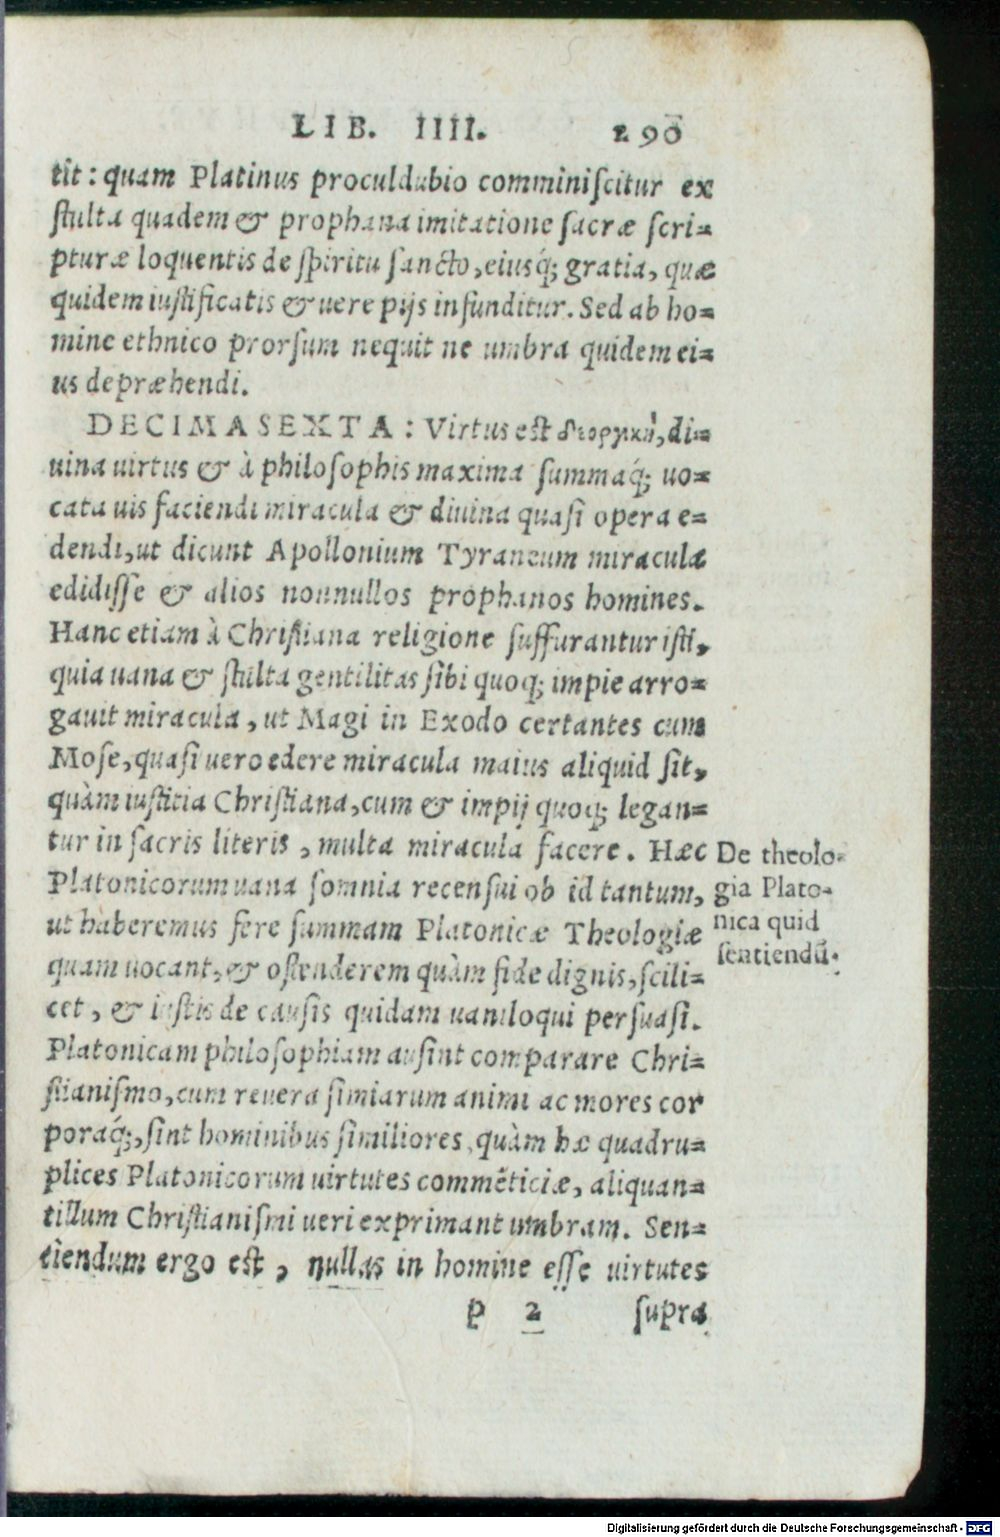 LIB. IIII. 290
tit: quam Platinus proculdubio comminiſcitur ex
ſtulta quadem & prophana imitatione ſacræ ſcri=
pturæ loquentis de ſpiritu ſancto, eiusq́; gratia, quæ
quidem iuſtificatis & uere pijs infunditur. Sed ab ho=
mine ethnico prorſum nequit ne umbra quidem ei=
us depræhendi.
DECIMASEXTA: Virtus eſt θεουργικὴ, di=
uina uirtus & à philoſophis maxima ſummaq́; uo=
cata uis faciendi miracula & diuina quaſi opera e=
dendi, ut dicunt Apollonium Tyraneum miracula
edidiſſe & alios nonnullos prophanos homines.
Hanc etiam à Chriſtiana religione ſuffurantur iſti,
quia uana & ſtulta gentilitas ſibi quoq; impie arro=
gauit miracula, ut Magi in Exodo certantes cum
Moſe, quaſi uero edere miracula maius aliquid ſit,
quàm iuſticia Chriſtiana, cum & impij quoq; legan=
tur in ſacris literis, multa miracula facere. Hæc
Platonicorum uana ſomnia recenſui ob id tantum,
ut haberemus fere ſummam Platonicæ Theologiæ
quam uocant, & oſtenderem quàm fide dignis, ſcili=
cet, & iuſtis de cauſis quidam uaniloqui perſuaſi.
Platonicam philoſophiam auſint comparare Chri=
ſtianiſmo, cum reuera ſimiarum animi ac mores cor
poraq́;, ſint hominibus ſimiliores, quàm hæ quadru=
plices Platonicorum uirtutes commẽticiæ, aliquan=
tillum Chriſtianiſmi ueri exprimant umbram. Sen=
tiendum ergo eſt, nullas in homine eſſe uirtutes
p 2 ſupra
De theolo=
gia Plato=
nica quid
ſentiendũ.
Digitalisierung gefördert durch die Deutsche Forschungsgemeinschaft - DFG